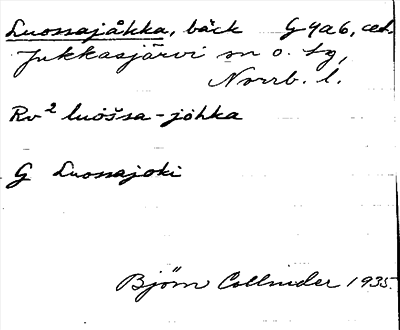 Luossajåkka, bäck G 4 a 6, ced.
Jukkasjärvi sn o. tg,
Norrb. l.
Rv² luošsa-johka
G Luossajoki
Björn Collinder 1935.